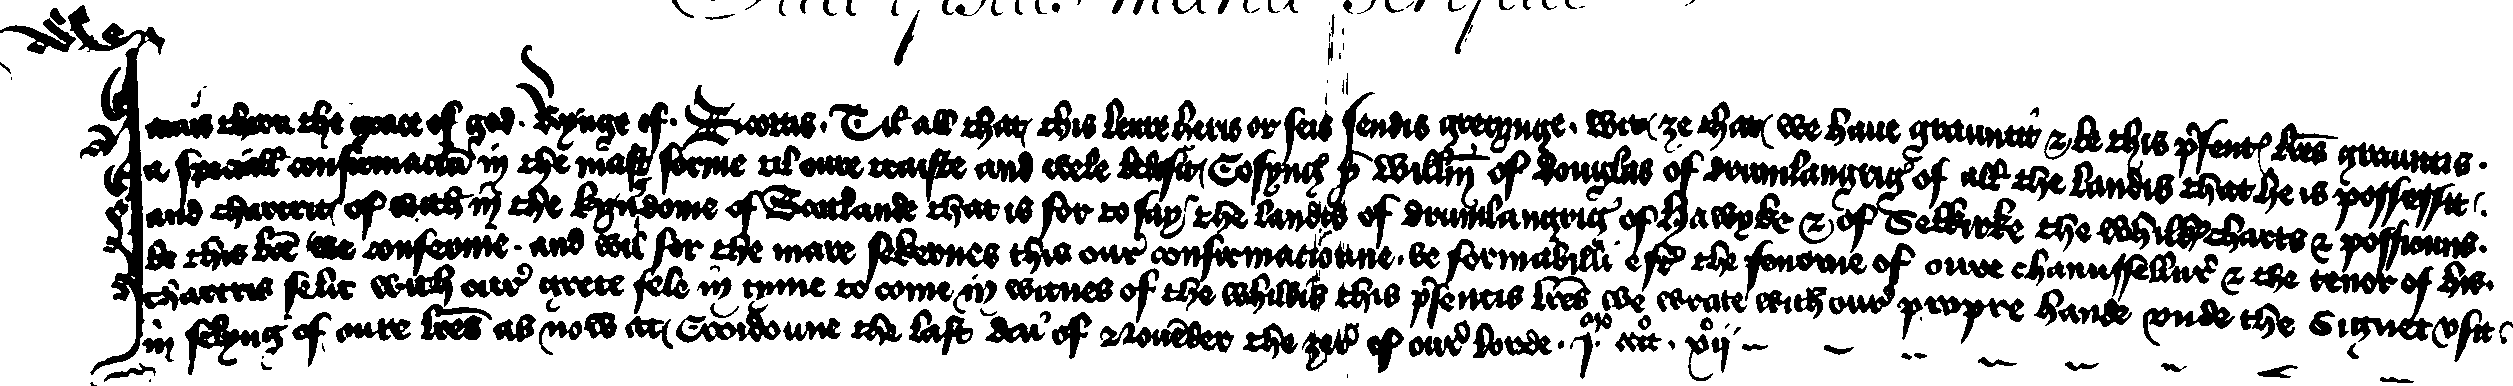 Jamis throu the grace of god. Kynge of. Scottis. Til all that this lettre heris or seis sendis gretynge. Wit ze that we haue grauntit & be this p̄sent l̄res grauntis.
a speciall confirmacioñ in the mast forme til oure traiste and wele belufit Cosyng s̄ Will̄m of Douglas of drumlangrig of all the landis that he is possessit.
and charterit of with in the kyngdome of Scotlande that is for to say the landis of drumlangrig of Hawyke & of Selkirke the whilkis charts & possiouns.
be this l̄re we conferme. and wil for the mare sekernes this our confirmacioune. be formabilli eft the fourme of oure chaunssellur & the tenor of his.
chartris selit with our grete sele in tyme to come in witnes of the whilkis this p̄sentis l̄res we wrate with our propre hande vnde the Signet vsit.
in selyng of oure l̄res as now at Croidoune the last day of Nouēber the zer of our lorde. j. cccc. xij